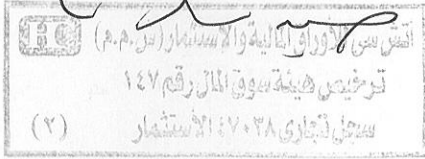 اتش سى للأوراق المالية والاستثمار (س.م.م) HC
ترخيص هيئة سوق المال رقم ١٤٧
سجل تجارى ٤٧٠٣٨ الاستثمار
(٣)